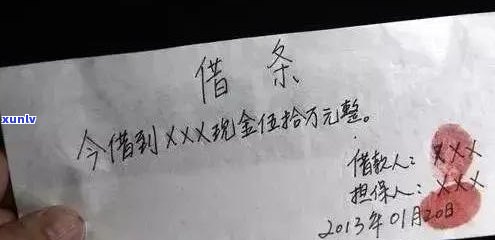 借条
今借到XXX现金伍拾万元整。
借款人：XXX
担保人：XXX
2013年01月20日
xunlv